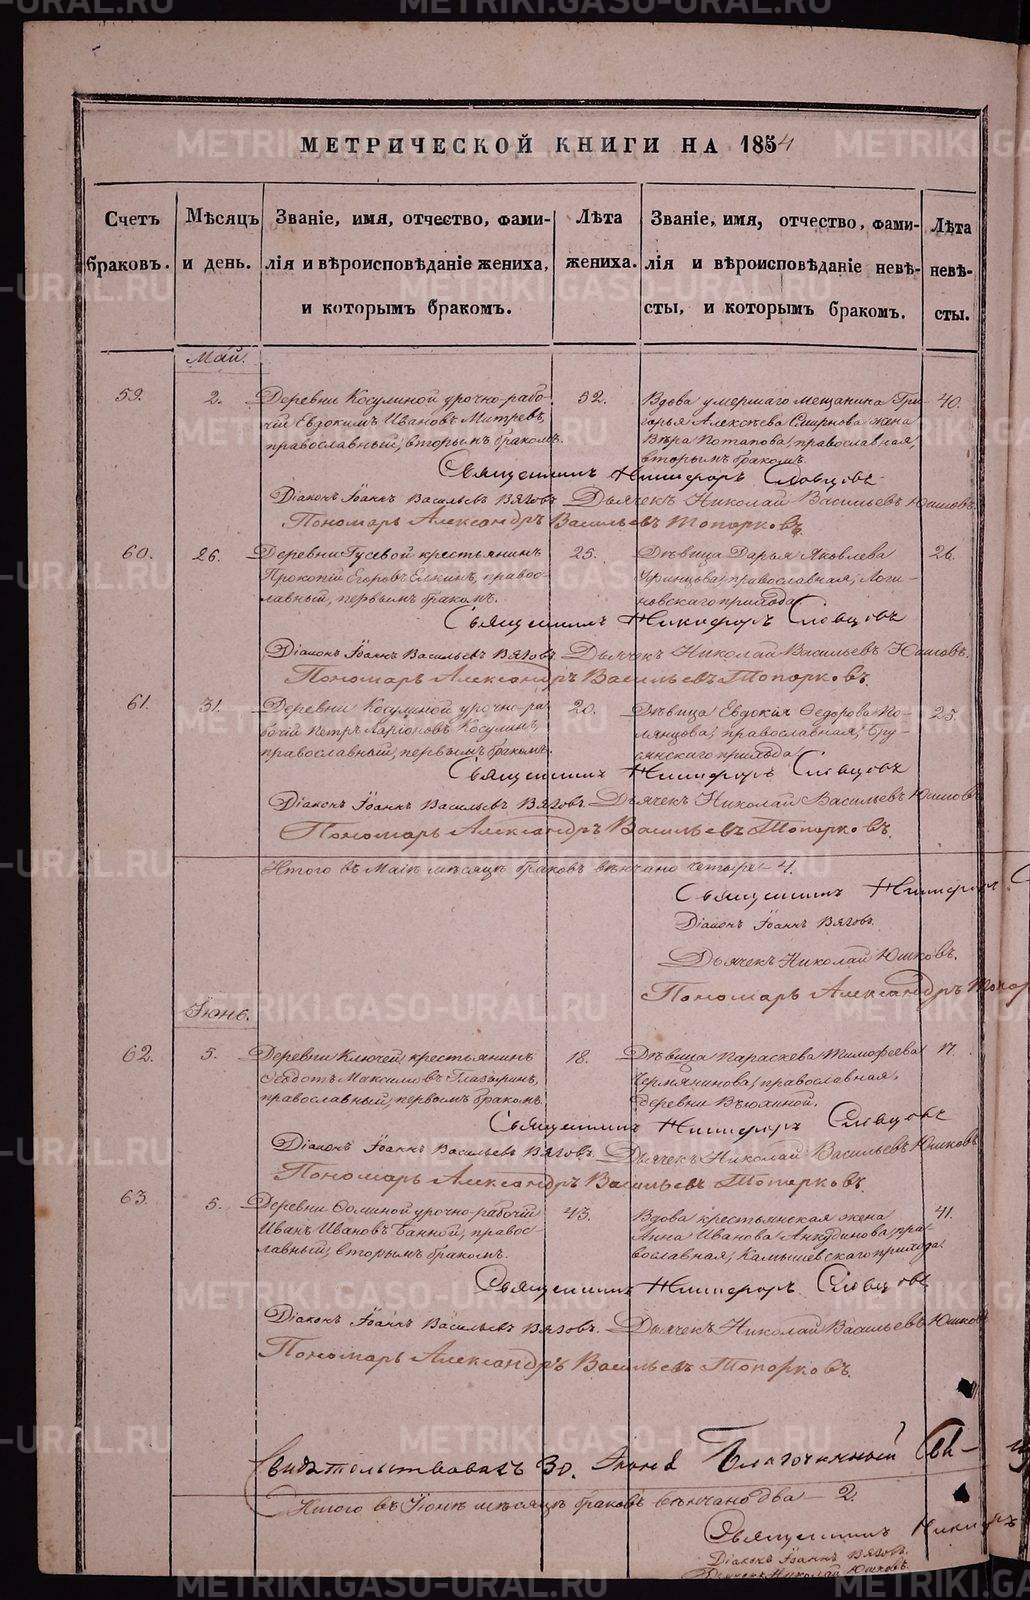 МЕТРИЧЕСКОЙ КНИГИ НА 1854
Счетъ браковъ.
Мѣсяцъ и день.
Званіе, имя, отчество, фами-
лія и вѣроисповѣданіе жениха,
и которымъ бракомъ.
Лѣта жениха.
Званіе, имя, отчество, фами-
лія и вѣроисповѣданіе невѣ-
сты, и которымъ бракомъ.
Лѣта невѣ-
сты.
Май.
59.
2.
Деревни Косулиной урочно-рабо-
чій Евдокимъ Ивановъ
православный, вторымъ бракомъ.
52.
Вдова умершаго мещанина Гри-
горья Алексѣева Смирнова жена
Вѣра Потапова, православная,
вторымъ бракомъ.
40.
Священникъ Никифоръ Словцовъ
Діаконъ Іоаннъ Васильевъ Вяговъ. Дьячекъ Николай Васильевъ Юшковъ.
Пономарь Александръ Васильевъ Топорковъ.
60.
26.
Деревни Гусевой крестьянинъ
Прокопій Егоровъ Елкинъ, право-
славный, первымъ бракомъ.
25.
Дѣвица Дарья Яковлева
православная, Логи-
новскаго прихода.
26.
Священникъ Никифоръ Словцовъ
Діаконъ Іоаннъ Васильевъ Вяговъ. Дьячекъ Николай Васильевъ Юшковъ.
Пономарь Александръ Васильевъ Топорковъ.
61.
31.
Деревни Косулиной урочно-ра-
бочій Петръ Ларіоновъ Косулинъ,
православный, первымъ бракомъ.
20.
Дѣвица Евдокія Ѳедорова По-
лянцова, православная, Бру-
сянскаго прихода.
25.
Священникъ Никифоръ Словцовъ
Діаконъ Іоаннъ Васильевъ Вяговъ. Дьячекъ Николай Васильевъ Юшковъ
Пономарь Александръ Васильевъ Топорковъ.
Итого въ Маіѣ мѣсяцѣ браковъ вѣнчано четыре 4.
Священникъ Никифоръ
Діаконъ Іоаннъ Вяговъ.
Дьячекъ Николай Юшковъ.
Пономарь Александръ Топор
Іюнь.
62.
5.
Деревни Ключей крестьянинъ
Ѳедотъ Максимовъ Глазыринъ,
православный, первымъ бракомъ.
18.
Дѣвица Параскева Тимофеева
Чермянинова, православная,
деревни Вьюхиной.
17.
Священникъ Никифоръ Словцовъ
Діаконъ Іоаннъ Васильевъ Вяговъ. Дьячекъ Николай Васильевъ Юшковъ
Пономарь Александръ Васильевъ Топорковъ.
63.
5.
Деревни Ѳоминой урочно-рабочій
Иванъ Ивановъ Банной, право-
славный, вторымъ бракомъ.
43.
Вдова крестьянская жена
Анна Иванова Анкудинова, пра-
вославная, Камышевскаго прихода.
41.
Священникъ Никифоръ Словцовъ
Діаконъ Іоаннъ Васильевъ Вяговъ. Дьячекъ Николай Васильевъ Юшковъ
Пономарь Александръ Васильевъ Топорковъ.
Свидѣтельствовалъ 30. Іюня Благочинный
Итого въ Іюнѣ мѣсяцѣ браковъ вѣнчано два 2.
Священникъ Никифоръ
Діаконъ Іоаннъ Вяговъ.
Дьячекъ Николай Юшковъ.
METRIKI.GASO-URAL.RU